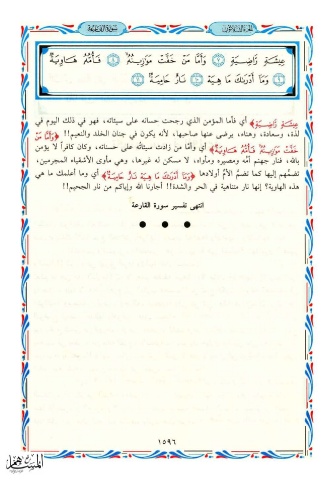 الجزء الثلاثون
سورة القارعة
عِيشَةٍ رَّاضِيَةٍ ٧ وَأَمَّا مَنْ خَفَّتْ مَوَازِينُهُۥ ٨ فَأُمُّهُۥ هَاوِيَةٌ
٩ وَمَآ أَدْرَىٰكَ مَا هِيَهْ ١٠ نَارٌ حَامِيَةٌۢ ١١
عِيشَةٍ رَّاضِيَةٍ﴾ أي فأما المؤمن الذي رجحت حسناته على سيئاته، فهو في ذلك اليوم في
لذة، وسعادة، وهناء، يرضى عنها صاحبها، لأنه يكون في جنان الخلد والنعيم!! ﴿وَأَمَّا مَنْ
خَفَّتْ مَوَازِينُهُۥ فَأُمُّهُۥ هَاوِيَةٌ﴾ أي وأمَّا من زادت سيئاتُه على حسناته، وكان كافراً لا يؤمن
بالله، فنار جهنم أمُّه ومصيره ومأواه، لا مسكن له غيرها، وهي مأوى الأشقياء المجرمين،
تضمُّهم إليها كما تضمُّ الأمُّ أولادها ﴿وَمَآ أَدْرَىٰكَ مَا هِيَهْ نَارٌ حَامِيَةٌۢ﴾ أي وما أعلمك ما هي
هذه الهاوية؟ إنها نار متناهية في الحر والشدة!! أجارنا الله وإياكم من نار الجحيم!!
انتهى تفسير سورة القارعة
١٥٩٦